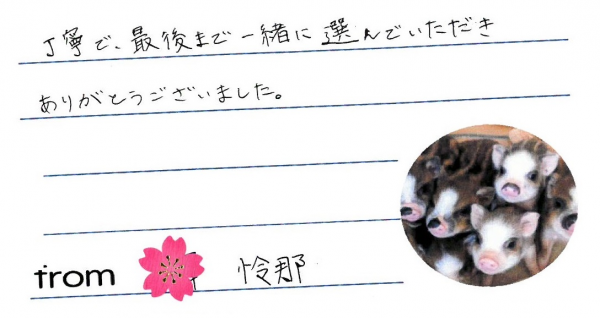 丁寧で、最後まで一緒に選んでいただき
ありがとうございました。
from 怜那